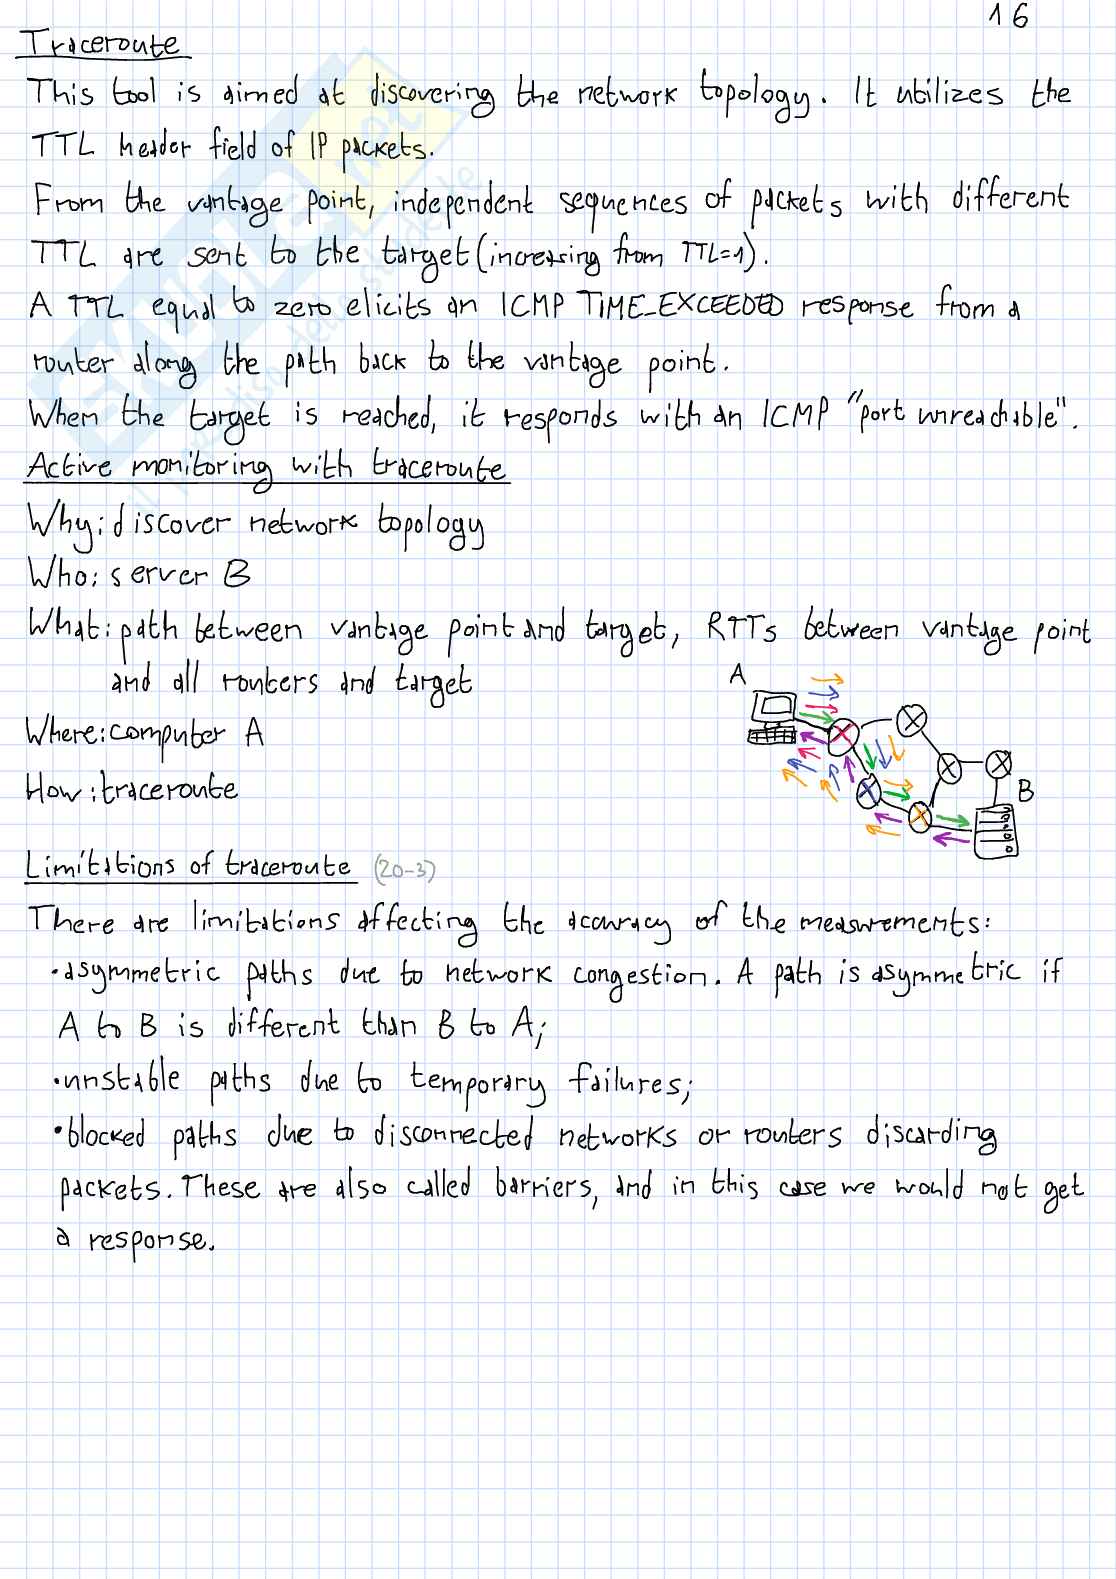 16
Traceroute
This tool is aimed at discovering the network topology. It utilizes the
TTL header field of IP packets.
From the vantage point, independent sequences of packets with different
TTL are sent to the target (increasing from TTL=1).
A TTL equal to zero elicits an ICMP TIME_EXCEEDED response from a
router along the path back to the vantage point.
When the target is reached, it responds with an ICMP "port unreachable".
Active monitoring with traceroute
Why: discover network topology
Who: server B
What: path between vantage point and target, RTTs between vantage point
and all routers and target
A
Where: computer A
How: traceroute
B
Limitations of traceroute (20-3)
There are limitations affecting the accuracy of the measurements:
•asymmetric paths due to network congestion. A path is asymmetric if
A to B is different than B to A;
•unstable paths due to temporary failures;
•blocked paths due to disconnected networks or routers discarding
packets. These are also called barriers, and in this case we would not get
a response.